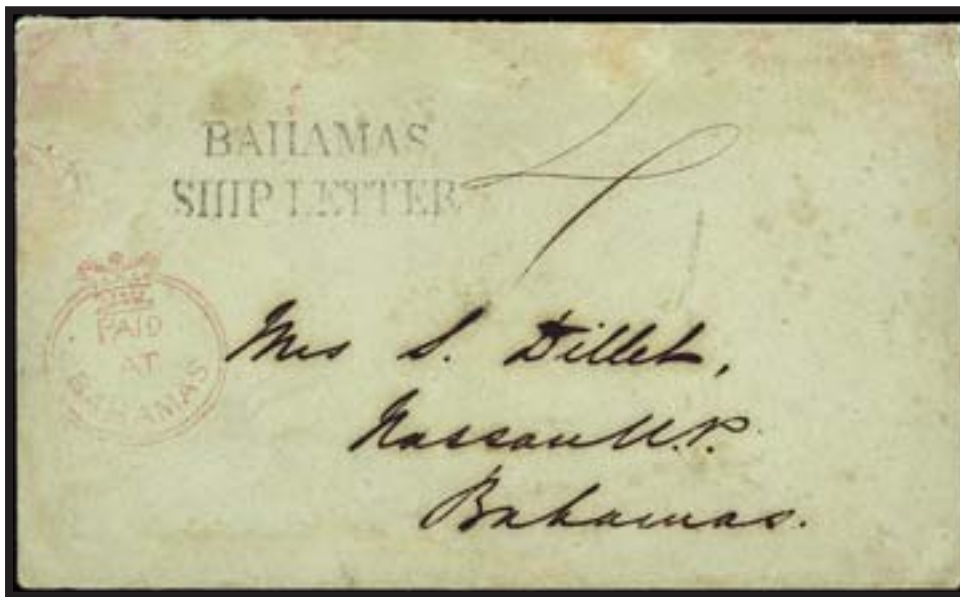 BAHAMAS
SHIP LETTER
4
PAID
AT
BAHAMAS
Mrs S. Dillet,
Nassau N.P.
Bahamas.